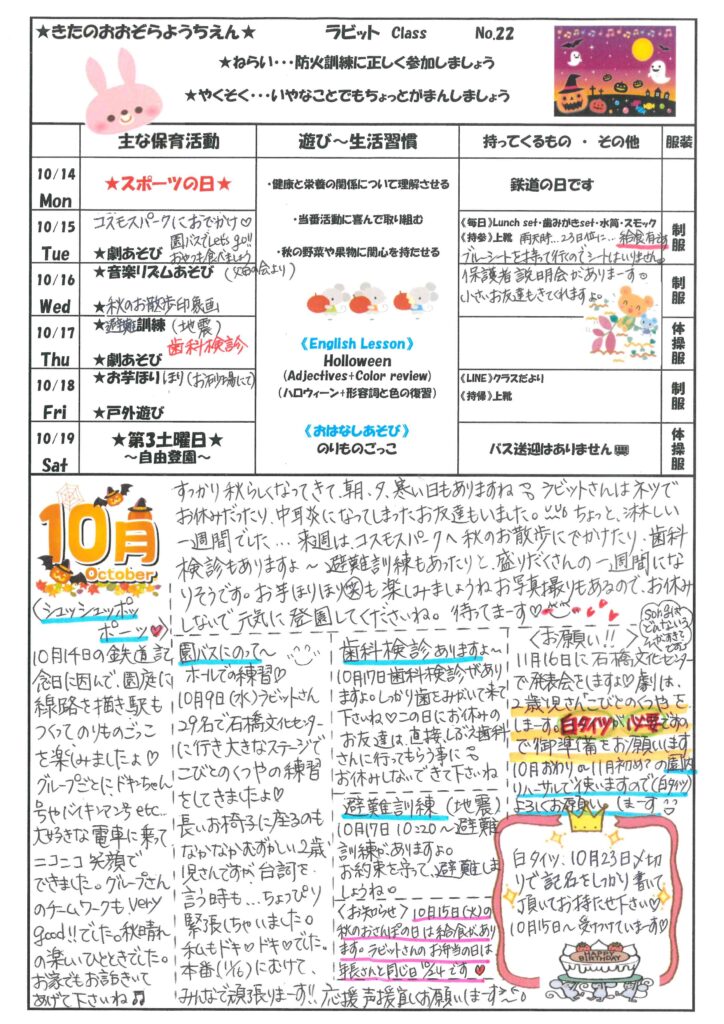 ★きたのおおぞらようちえん★　ラビット Class　No.22
★ねらい・・・防火訓練に正しく参加しましょう
★やくそく・・・いやなことでもちょっとがまんしましょう
主な保育活動　遊び～生活習慣　持ってくるもの ・ その他　服装
10/14 Mon
★スポーツの日★
・健康と栄養の関係について理解させる
鉄道の日です
10/15 Tue
コスモスパークにおでかけ♡
園バスでLet's go!!
おやつも食べましょう
★劇あそび
・当番活動に喜んで取り組む
・秋の野菜や果物に関心を持たせる
《毎日》Lunch set・歯みがきset・水筒・スモック
《持参》上靴 雨天時…23日位に…給食有
ブルーシートを持って行くのでシートはいりません。
制服
10/16 Wed
★音楽リズムあそび
★秋のお散歩印象画
保護者説明会がありまーす。
小さいお友達もきてくれますよ。
制服
10/17 Thu
★避難訓練（地震）
歯科検診
★劇あそび
《English Lesson》
Holloween
(Adjectives+Color review)
(ハロウィーン+形容詞と色の復習)
体操服
10/18 Fri
★お芋ほり ほり（お芋ほり場にて）
★戸外遊び
《LINE》クラスだより
《持帰》上靴
制服
10/19 Sat
★第3土曜日★
～自由登園～
《おはなしあそび》
のりものごっこ
バス送迎はありません
体操服
10月
October
すっかり秋らしくなってきて、朝、夕、寒い日もありますね。ラビットさんはネツで
お休みだったり、中耳炎になってしまったお友達もいました。ちょっと、淋しい
一週間でした…来週は、コスモスパークへ秋のお散歩にでかけたり、歯科
検診もありますよ～避難訓練もあったりと、盛りだくさんの一週間にな
りそうです。お芋ほりほりも楽しみましょうねお写真撮りもあるので、お休み
しないで元気に登園してくださいね。待ってまーす♡
〈シュッシュッポッポーッ♥
10月14日の鉄道記
念日に因んで、園庭に
線路を描き駅も
つくってのりものごっこ
を楽しみましたよ♡
グループごとにドキンちゃん
号やバイキンマン号etc…
大好きな電車に乗って
ニコニコ笑顔で
できました。グループさん
のチームワークもvery
good!!でした。秋晴れ
の楽しいひとときでした。
お家でもお話きいて
あげて下さいね♫
園バスにのって～
ホールでの練習♡
10月9日(水)ラビットさん
29名で石橋文化センター
に行き大きなステージで
こびとのくつやの練習
をしてきましたよ♡
長いお椅子に座るのも
なかなかむずかしい2歳
児さんですが、台詞を
言う時も…ちょっぴり
緊張しちゃいました。
私もドキ♡ドキ♡でした。
本番(11/16)にむけて、
みんなで頑張りまーす!!応援声援宜しくお願いしまーす。
歯科検診ありますよ～
10月17日歯科検診があり
ますよ。しっかり歯をみがいて来て
下さいね♡この日にお休みの
お友達は、直接しぶえ歯科
さんに行ってもらう事に
お休みしないできて下さいね
避難訓練（地震）
10月17日10:20～避難
訓練がありますよ。
お約束を守って、避難しま
しょうね。
〈お知らせ〉10月15日(火)の
秋のおさんぽの日は給食があり
ます。ラビットさんのお弁当の日は
年長さんと同じ日10/24です♥
〈お願い!!〉
11月16日に石橋文化センター
で発表会をしますよ♡劇は、
2歳児さんこびとのくつやを
しまーす。白タイツが必要です
ので御準備をお願います
10月おわり～11月初めの園内
リハーサルで使いますので(白タイツ)
よろしくお願いしまーす
白タイツ、10月23日〆切
りで記名をしっかり書いて
頂いてお持たせ下さい♡
10月15日～受けつけていまーす♡
HAPPY
BIRTHDAY